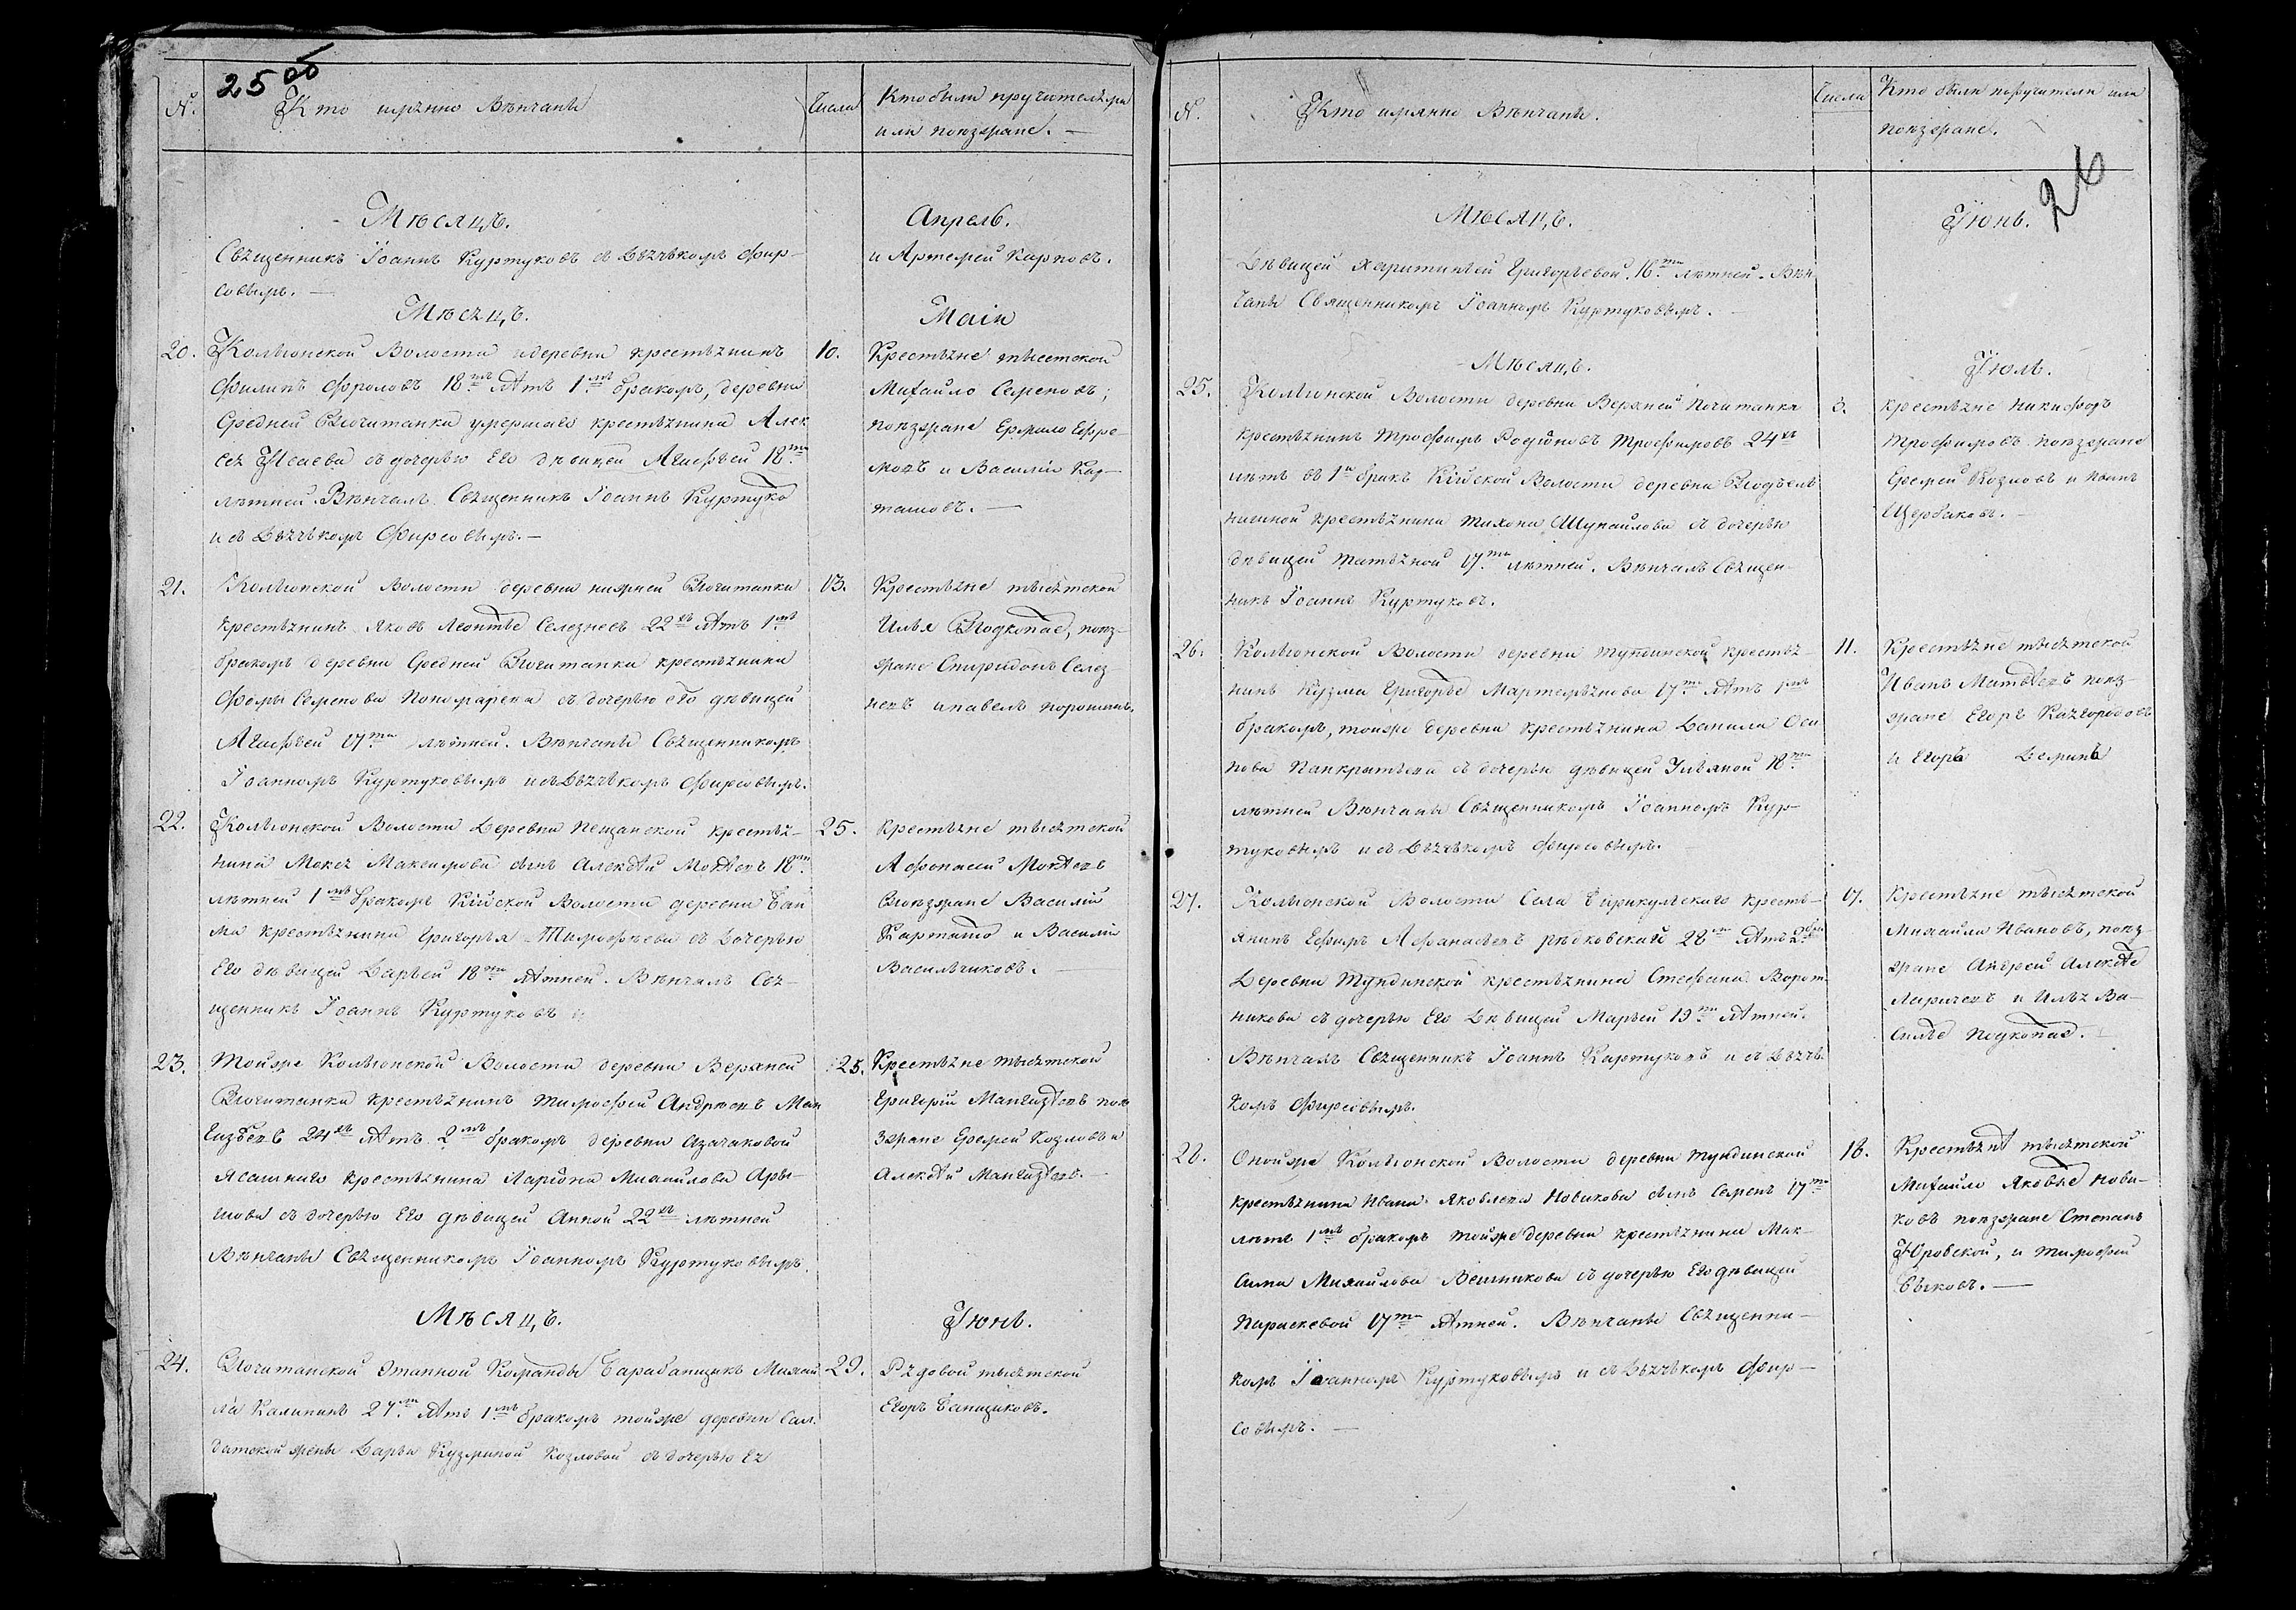 25 об
№.
Кто имѧнно Вѣнчаны
Числа
Кто были поручителями
или поѣзжане. —
Мѣсяцъ.
Апрель.
Свѧщенникъ Іоаннъ Куртуковъ съ Дьѧчькомъ Фир-
совымъ. —
и Артемей Карповъ.
Мѣсѧцъ.
Маіи
20.
Колыонской Волости и деревни крестьѧнинъ
Филипъ Фроловъ 18ть лѣтъ 1мъ бракомъ, деревни
Средней Почитанки умершаго крестьѧнина Алек
сеѧ Исаева съ дочерью Его дѣвицей Агафьей 18ти
лѣтней. Вѣнчалъ Свѧщенникъ Іоаннъ Куртуко
и съ Дьѧчькомъ Фирсовымъ. —
10.
Крестьѧне тысѧтской
Михайло Семеновъ;
поѣзжане Ермило Ефре-
мовъ и Василіи Кар-
ташовъ. —
21.
Колыонской Волости деревни нижней Почитанки
крестьѧнинъ Яковъ Леонтье Селезневъ 22хъ лѣтъ 1мъ
бракомъ деревни Средней Почитанки крестьѧнина
Фомы Семенова Пономарева съ дочерью его дѣвицей
Агафьей 17ти лѣтней. Вѣнчаны Свѧщенникомъ
Іоанномъ Куртуковымъ и съ Дьѧчькомъ Фирсовымъ.
13.
Крестьѧне тысѧтской
Илья Подкопае, поѣз-
жане Спиридонъ Селез
невъ и павелъ порошинъ.
22.
Колыонской Волости Деревни Пещанской крестьѧ-
нина Мокеѧ Максимова сынъ Алексѣй Мокѣевъ 18ти
лѣтней 1мъ бракомъ Кійской Волости деревни Баи
ма крестьѧнина Григорья Тимофѣева съ дочерью
Его дѣвицей Дарьей 18ти лѣтней. Вѣнчалъ Свѧ-
щенникъ Іоаннъ Куртуковъ
25.
Крестьѧне тысѧтской
Афонасей Мокѣевъ
Поѣзжане Василій
Карташо и Василій
Васильчиковъ. —
23.
Тойже Колыонской Волости деревни Верхней
Почитанки крестьѧнинъ Тимофей Андрѣевъ Ман
гизѣевъ 24хъ лѣтъ 2мъ бракомъ деревни Азачаковой
Ясашнаго крестьѧнина Ларіона Михаилова Ары-
шова съ дочерью Его дѣвицей Анной 22хъ лѣтней
Вѣнчаны Свѧщенникомъ Іоанномъ Куртуковымъ.
25.
Крестьѧне тысѧтской
Григорій Мангизѣевъ поѣ
зжане Еремей Козловъ и
Алексѣй Мангизѣевъ. —
Мѣсяцъ.
Іюнь.
24.
Почитанской Этапной Команды Барабанщикъ Михаи
ла Калининъ 27ми лѣтъ 1мъ бракомъ тойже деревни Сал
датской жены Дарьи Кузминой Козловой съ дочерью Еѧ
29.
Рѧдовой тысѧтской
Егоръ Банщиковъ.
26
№.
Кто имянно Вѣнчаны.
Числа
Кто были поручители или
поѣзжане.
Мѣсяцъ.
Іюнь.
Дѣвицей Харитиньей Григорьевой. 16ти лѣтней. Вѣн
чаны Священникомъ Іоанномъ Куртуковымъ. —
Мѣсяцъ.
Іюль.
25.
Колыонской Волости деревни Верхней Почитанки
крестьѧнинъ Трофимъ Родіоновъ Трофимовъ 24хъ
лѣтъ въ 1й бракъ Кійской Волости деревни Подъель
нишной крестьѧнина Тихона Шупаилова съ дочерью
дѣвицей Татьѧной 17ти лѣтней. Вѣнчалъ Свѧщен-
никъ Іоаннъ Куртуковъ.
3.
крестьѧне Никифоръ
Трофимовъ поѣзжане
Еремей Козловъ и Иванъ
Щербаковъ. —
26.
Колыонской Волости деревни Тундинской крестьѧ-
нинъ Кузма Григорье Мартемьѧнова 17ти лѣтъ 1мъ
бракомъ, тойже деревни крестьѧнина Данила Оси
пова Панкратьева съ дочерью дѣвицей Ульяной 18ти
лѣтней Вѣнчаны Свѧщенникомъ Іоанномъ Кур-
туковымъ и съ Дьѧчькомъ Фирсовымъ.
11.
Крестьѧне тысѧтской
Иванъ Матвѣевъ поѣз-
жане Егоръ Кайгородовъ
и Егоръ Деминъ
27.
Колыонской Волости Села Бирикульскаго кресть-
янинъ Ефимъ Афанасьевъ рыбковской 28ми лѣтъ 2мъ
Деревни Тундинской крестьѧнина Стефана Ворот-
никова съ дочерью Его Дѣвицей Марьей 19ти лѣтней.
Вѣнчалъ Свѧщенникъ Іоаннъ Картуковъ и съ Дьѧчь
комъ Фирсовымъ.
17.
Крестьѧне тысѧтской
Михаила Ивановъ, поѣз-
жане Андрей Алексѣе
Ларичевъ и Ильѧ Ва-
силье Подкопае. —
28.
Онойже Колыонской Волости деревни Тундинской
крестьѧнина Ивана Яковлева Новикова сынъ Семенъ 17ти
лѣтъ 1мъ бракомъ тойже деревни крестьѧнина Мак-
сима Михайлова Вешникова съ дочерью Его дѣвицей
Параскевой 17ти лѣтней. Вѣнчаны Свѧщенни-
комъ Іоанномъ Куртуковымъ и съ Дьѧчькомъ Фир-
совымъ. —
18.
Крестьѧнѣ тысѧтской
Михаило Яковле Нови-
ковъ поѣзжане Степанъ
Юровской, и Тимофей
Быковъ. —